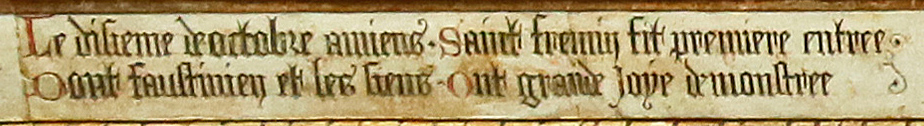 Le disieme de octobre amiens · Sainct fremin fit premiere entree ·
Dont faustinien et les siens · Ont grande joye demonstree